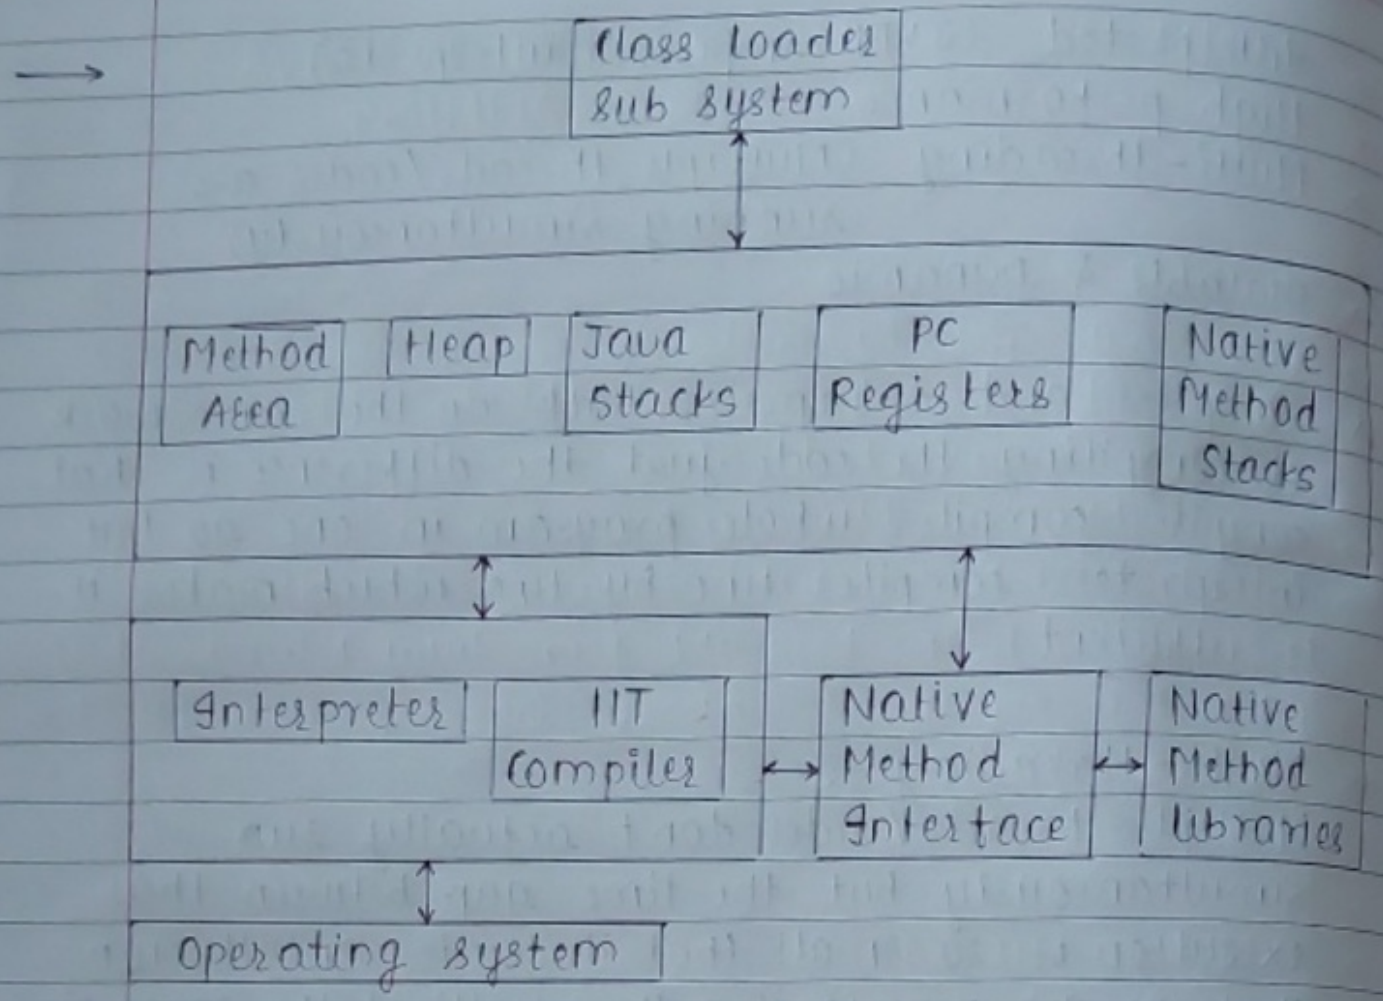 Class Loader
Sub system
Method
Area
Heap
Java
Stacks
PC
Registers
Native
Method
Stacks
Interpreter
IIT
Compiler
Native
Method
Interface
Native
Method
Libraries
Operating system